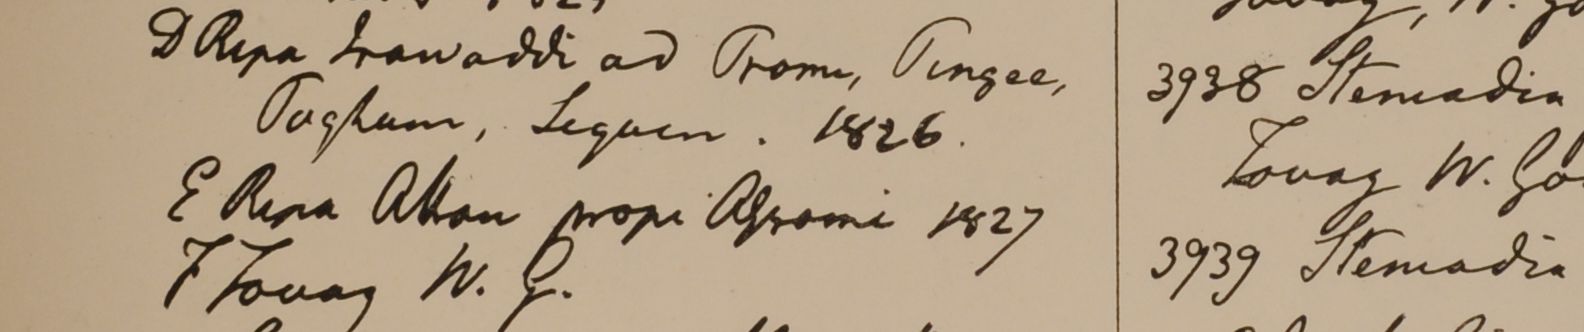 D Ripa Irawaddi ad Prome, Pingee,
Poghum, Leguen. 1826.
E Ripa Attan prope Aframi 1827
F Tovay W. G.
Tovay, W. Go
3938 Stemodia
Tovay W. Go
3939 Stemodia